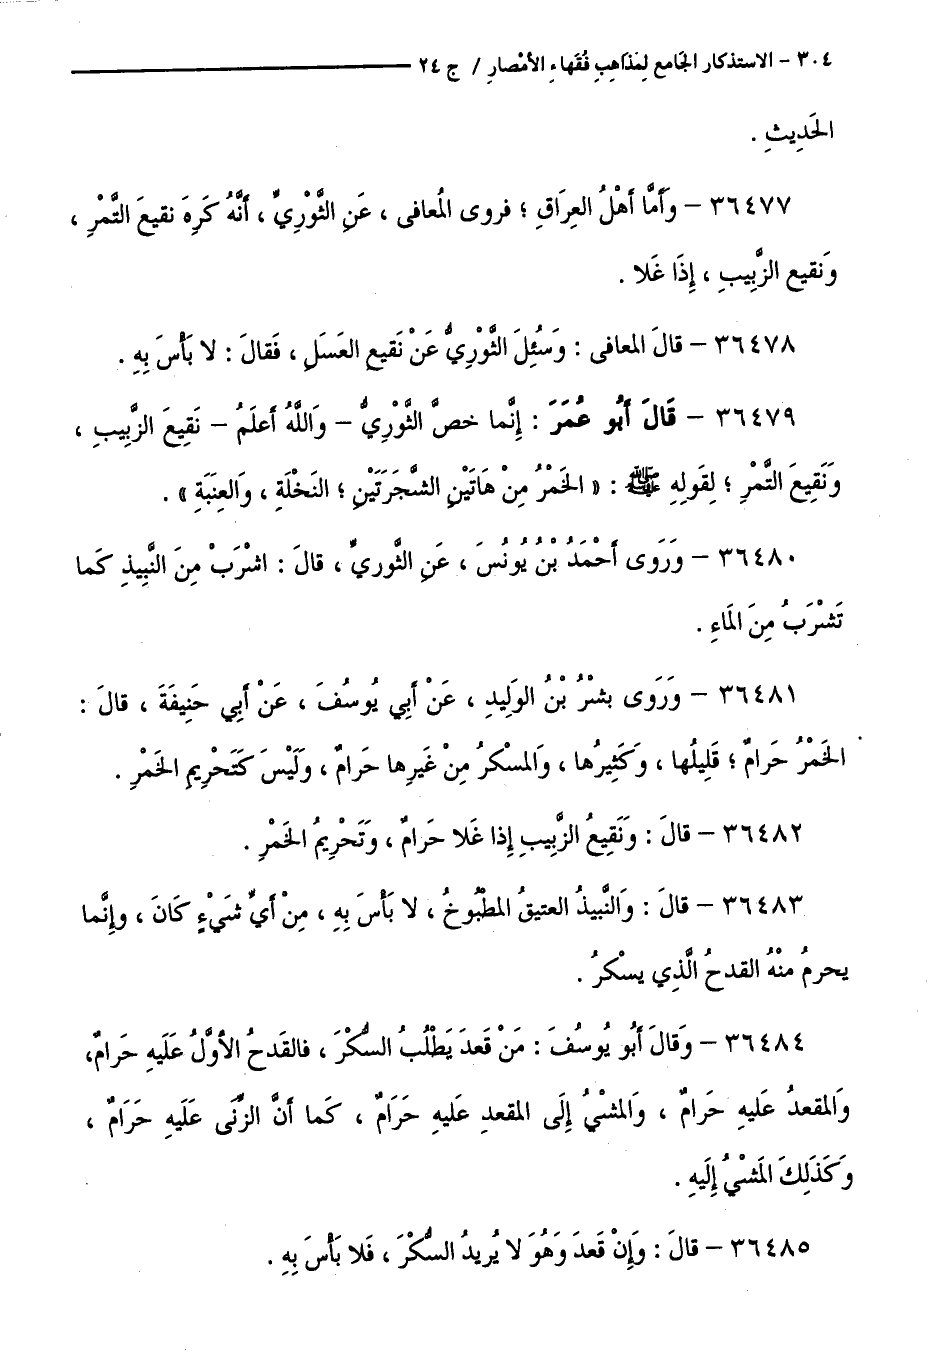 ٣٠٤ - الاستذكار الجَامع لِمَذاهِبِ فُقَهاءِ الأمْصارِ / ج ٢٤
الحَدِيثِ .
٣٦٤٧٧ - وَأمَّا أهْلُ العِرَاقِ ؛ فروى المُعافى ، عَنِ الثَّوْرِيِّ ، أنَّهُ كَرِهَ نقيعَ التَّمْرِ ،
وَنقيع الزَّبِيبِ ، إِذَا غَلا .
٣٦٤٧٨ - قالَ المعافى : وَسُئِلَ الثَّوْرِيُّ عَنْ نَقيعِ العَسَلِ ، فَقالَ : لا بَأسَ بِهِ .
٣٦٤٧٩ - قَالَ أَبُو عُمَرَ : إِنَّما خصَّ الثَّوْرِيُّ - وَاللَّهُ أعلَمُ - نَقِيعَ الزَّبِيبِ ،
وَنَقِيعَ التَّمْرِ ؛ لِقَولِهِ ﷺ : « الخَمْرُ مِنْ هَاتَيْنِ الشَّجَرَتَيْنِ ؛ النَخْلَةِ ، وَالعِنَبَةِ » .
٣٦٤٨٠ - وَرَوَى أحْمَدُ بْنُ يُونُسَ ، عَنِ الثَّوريِّ ، قالَ : اشْرَبْ مِنَ النَّبِيذِ كَما
تَشْرَبُ مِنَ المَاءِ .
٣٦٤٨١ - وَرَوَى بشْرُ بْنُ الوَلِيدِ ، عَنْ أبِي يُوسُفَ ، عَنْ أبِي حَنِيفَةَ ، قالَ :
الخَمْرُ حَرامٌ ؛ قَلِيلُها ، وَكَثِيرُها ، وَالمسْكرُ مِنْ غَيرِها حَرامٌ ، وَلَيْسَ كَتَحْرِيمِ الخَمْرِ .
٣٦٤٨٢ - قالَ : وَنَقِيعُ الزَّبِيبِ إِذا غَلا حَرامٌ ، وَتَحْرِيمُ الخَمْرِ .
٣٦٤٨٣ - قالَ : وَالنَّبيذُ العتيقُ المطْبُوخُ ، لا بَأسَ بِهِ ، مِنْ أيِّ شَيْءٍ كَانَ ، وإِنَّما
يحرمُ منْهُ القدحُ الَّذِي يسْكرُ .
٣٦٤٨٤ - وَقالَ أبُو يُوسُفَ : مَنْ قَعدَ يَطْلُبُ السُّكْرَ ، فالقَدحُ الأوَّلُ عَلَيهِ حَرامٌ،
وَالمقعدُ عَليهِ حَرامٌ ، وَالمشْيُ إِلَى المقعدِ عَليهِ حَرَامٌ ، كَما أنَّ الزِّنَى عَلَيهِ حَرَامٌ ،
وَكَذَلِكَ المَشْيُ إِلَيهِ .
٣٦٤٨٥ - قالَ : وَإِنْ قَعدَ وَهُوَ لا يُرِيدُ السُّكْرَ ، فَلا بَأسَ بِهِ .